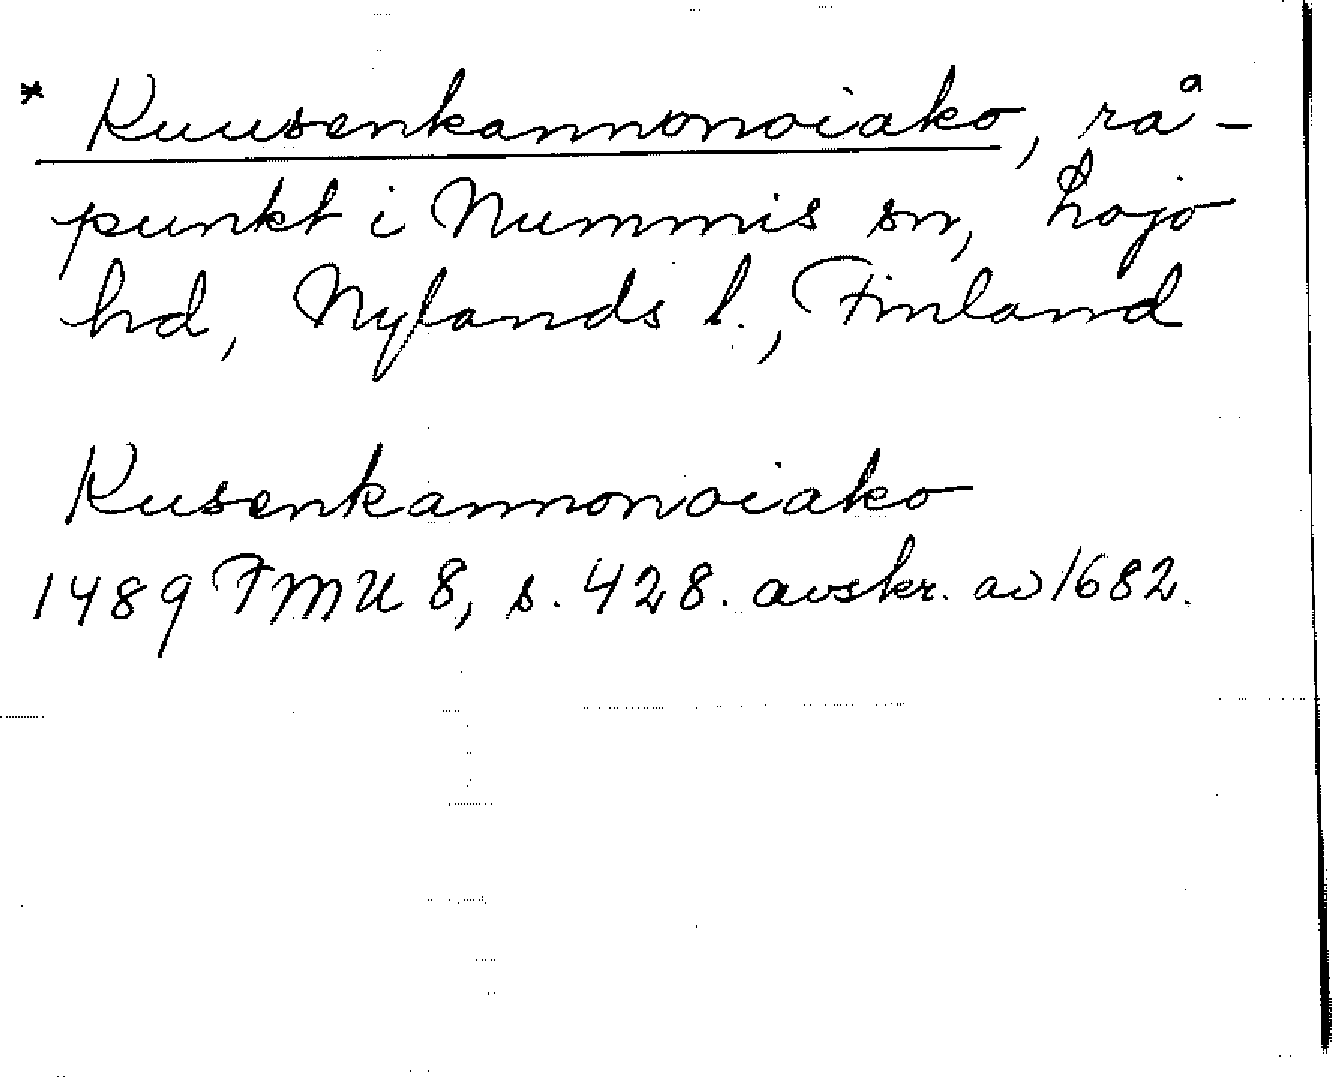 * Kuusenkannonoiako, rå-
punkt i Nummis sn, Lojo
hd, Nylands l., Finland
Kusenkannonoiako
1489 FMU 8, s. 428. avskr. av 1682.